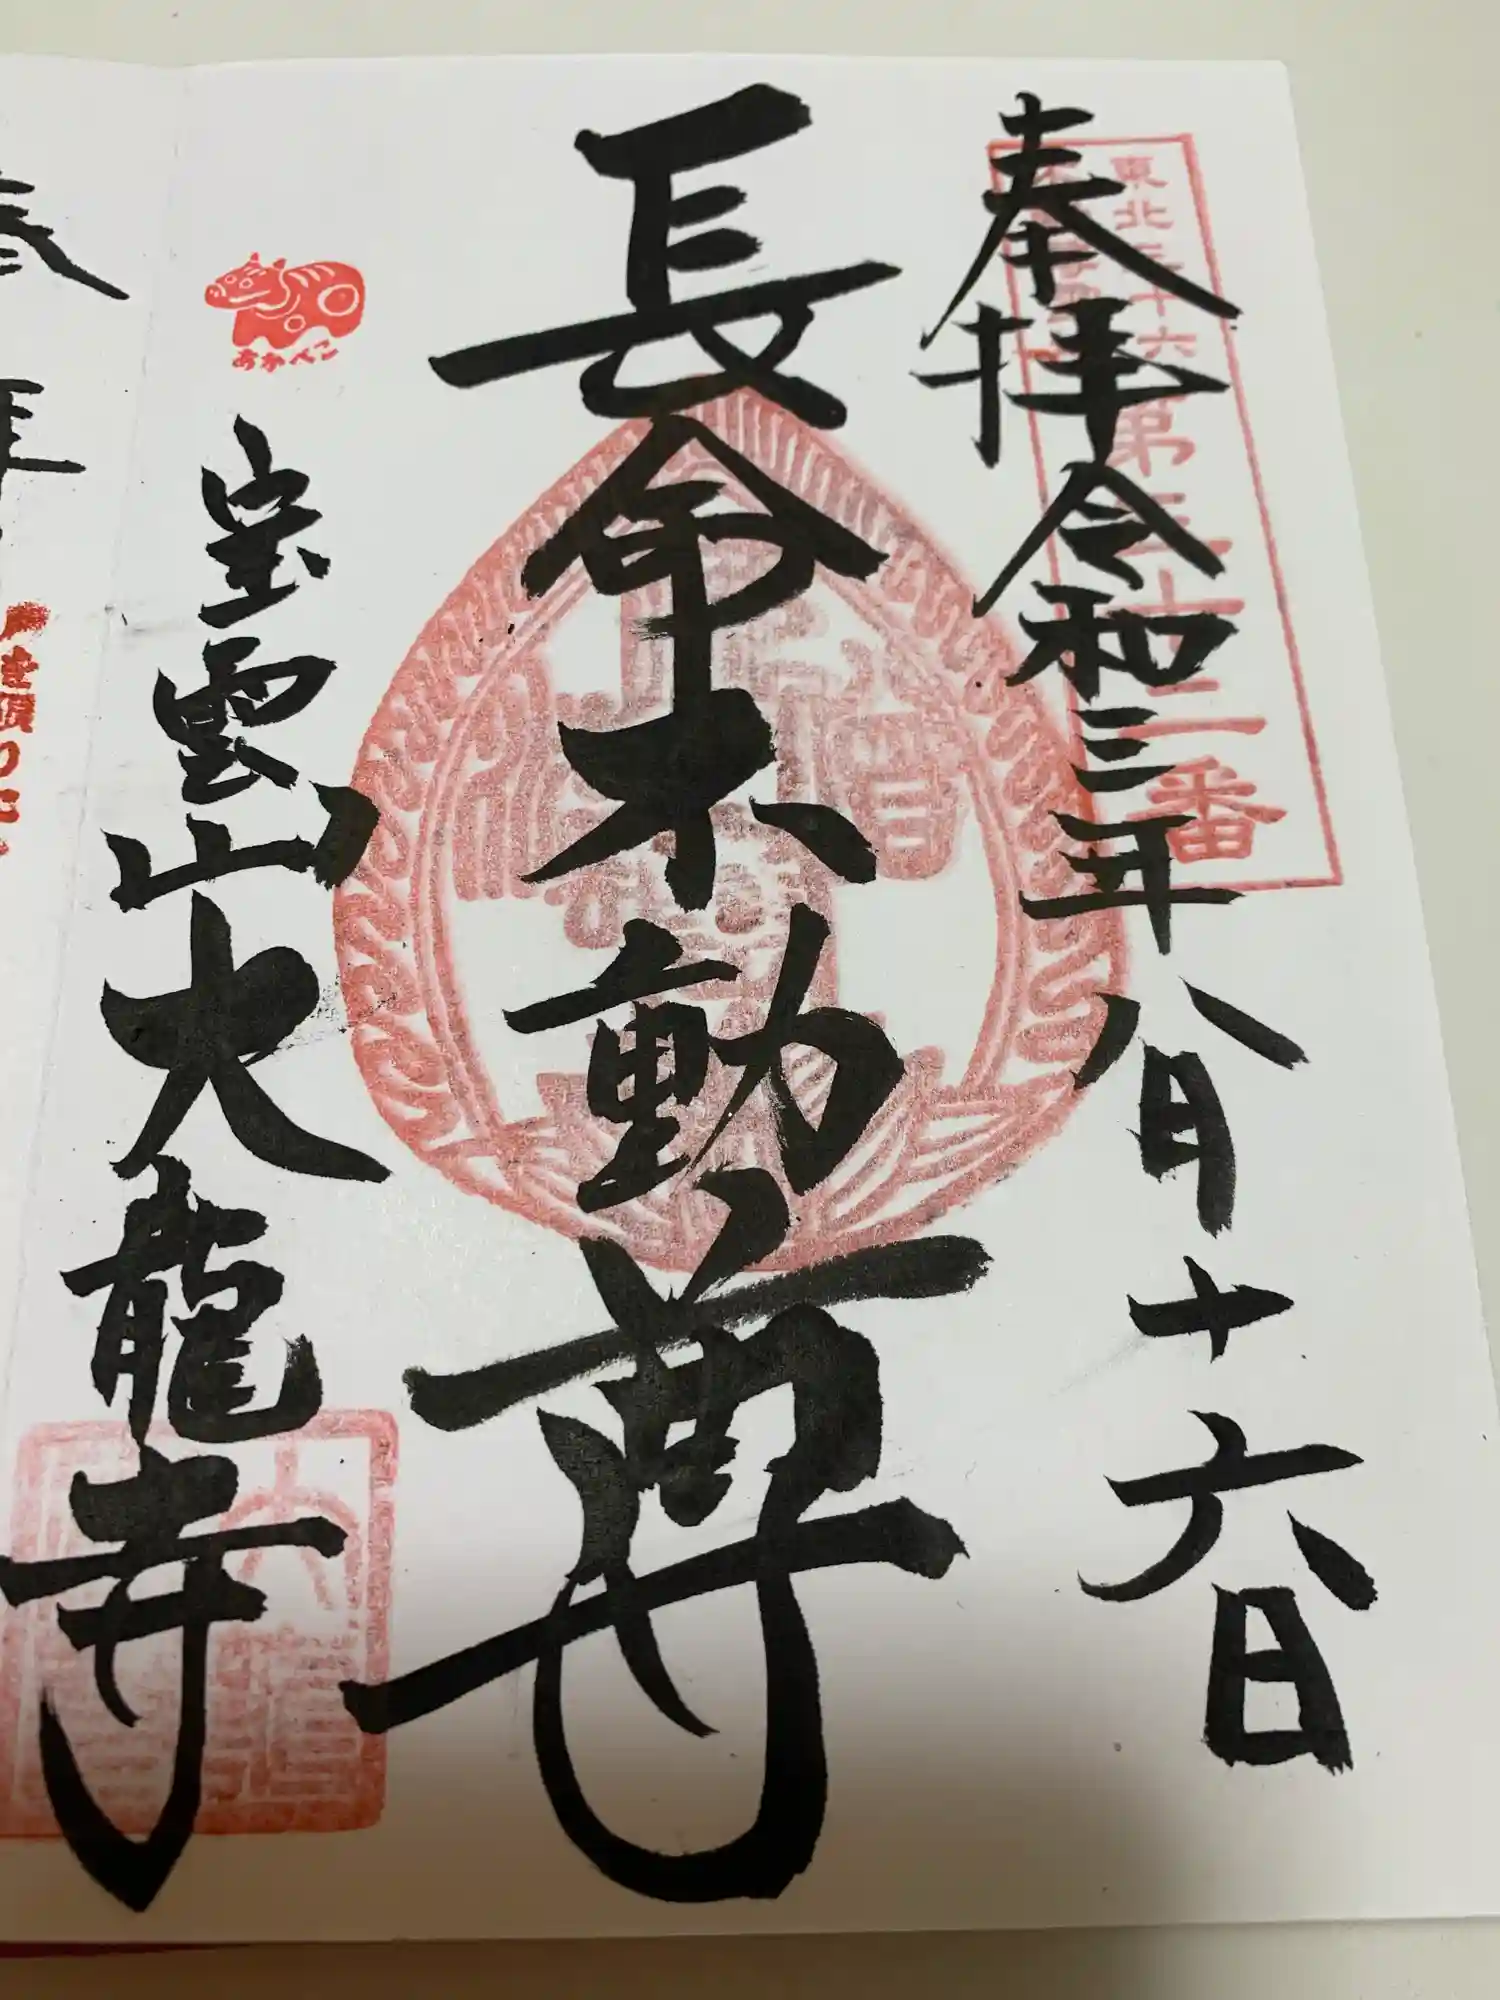 奉拝 令和三年八月十六日
東北三十六
第三十二番
長命不動尊
あかべこ
宝雲山大龍寺